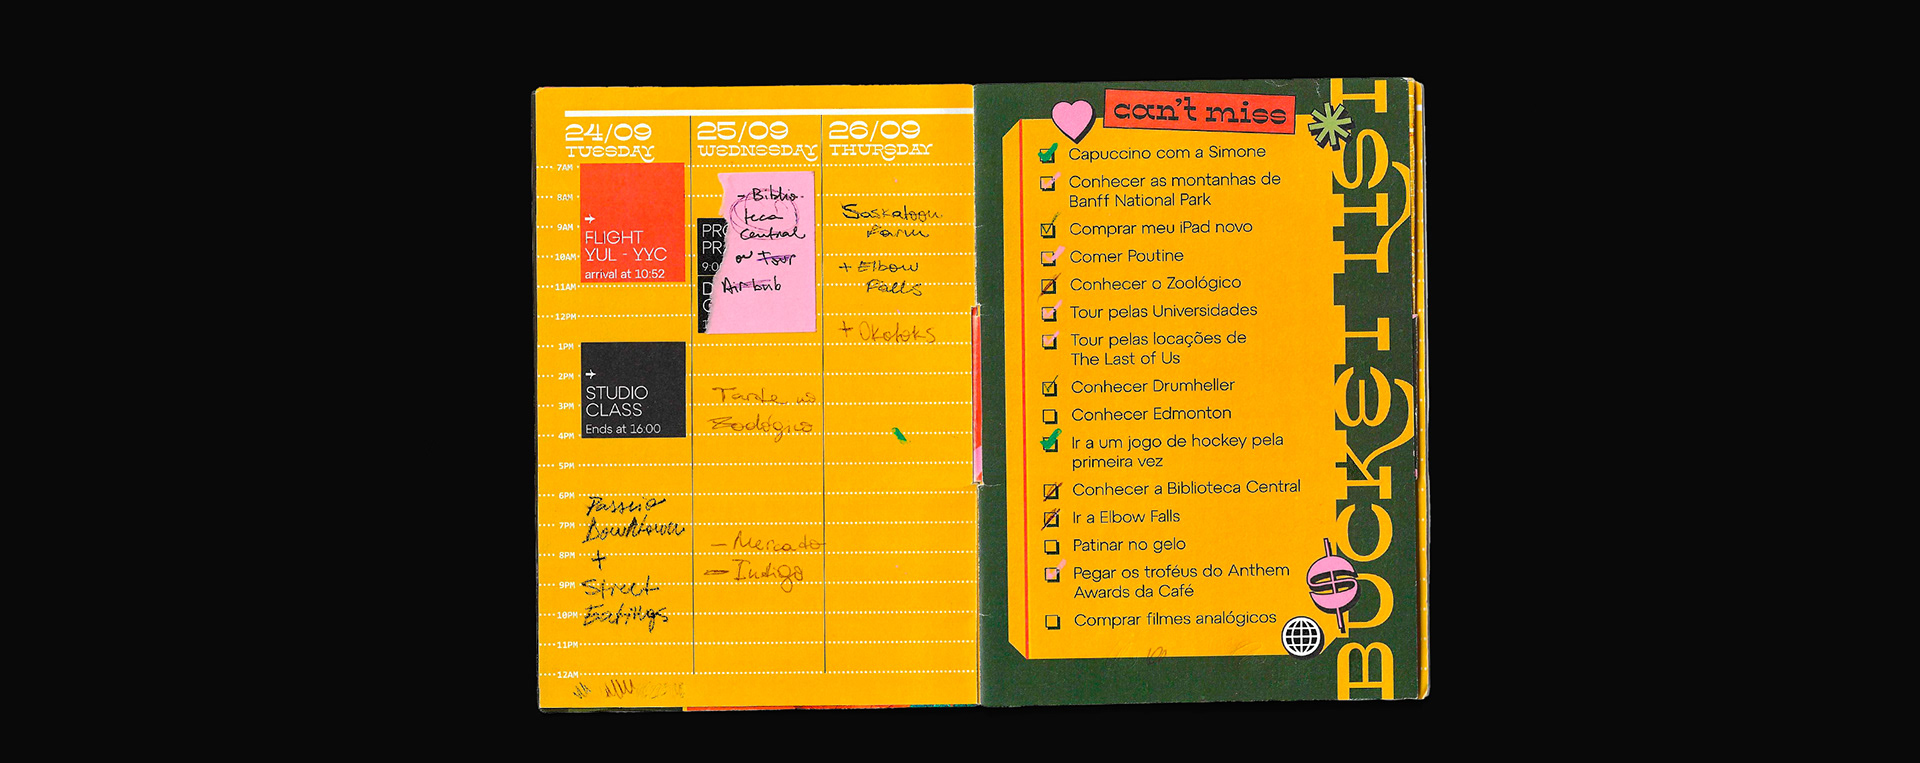 24/09
TUESDAY
7AM
8AM
9AM
10AM
11AM
12PM
1PM
2PM
3PM
4PM
5PM
6PM
7PM
8PM
9PM
10PM
11PM
12AM
FLIGHT
YUL - YYC
arrival at 10:52
STUDIO
CLASS
Ends at 16:00
Passeio
Downtown
+
Street
Eatings
25/09
WEDNESDAY
- Biblio-
teca
central
ou Tour
Airbnb
PR
PR
9:0
D
Tarde no
Zoológico
- Mercado
- Indigo
26/09
THURSDAY
Saskatoon
Farm
+ Elbow
Falls
+ Okotoks
can't miss
Capuccino com a Simone
Conhecer as montanhas de
Banff National Park
Comprar meu iPad novo
Comer Poutine
Conhecer o Zoológico
Tour pelas Universidades
Tour pelas locações de
The Last of Us
Conhecer Drumheller
Conhecer Edmonton
Ir a um jogo de hockey pela
primeira vez
Conhecer a Biblioteca Central
Ir a Elbow Falls
Patinar no gelo
Pegar os troféus do Anthem
Awards da Café
Comprar filmes analógicos
BUCKET LIST